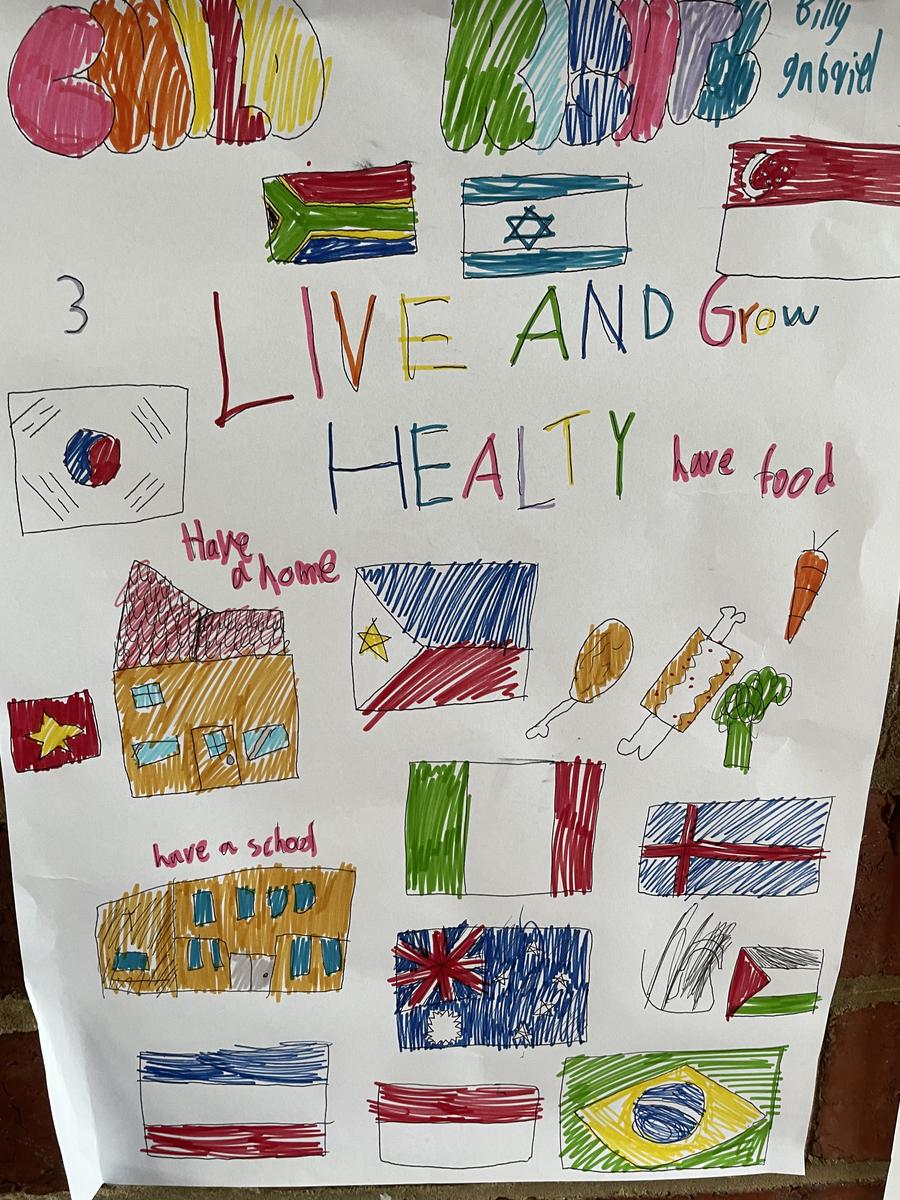 CHILD RIGHTS
Billy
gabriel
3
LIVE AND Grow
HEALTY have food
Have
a home
have a school